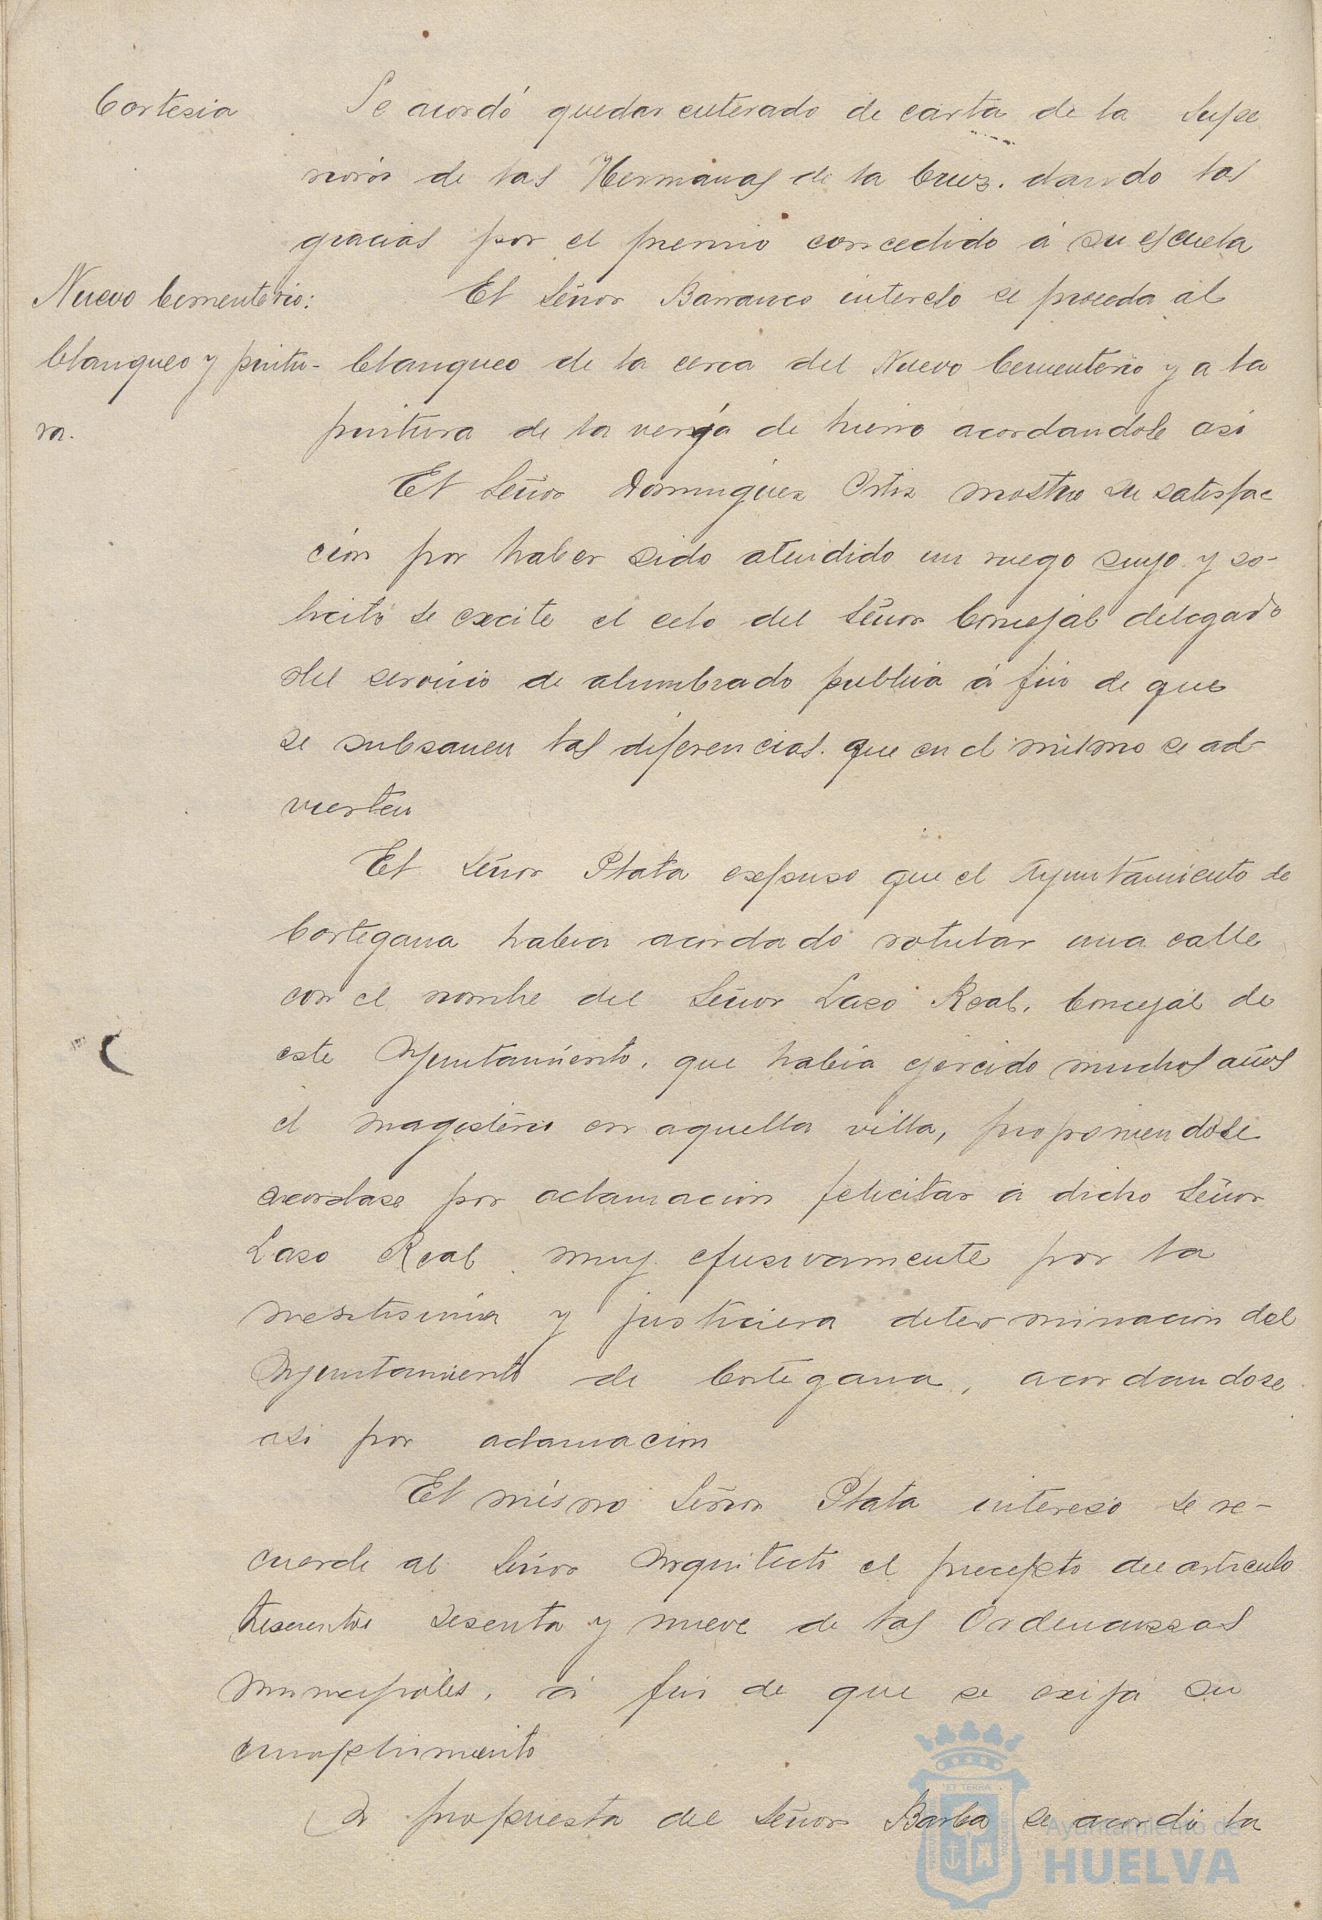 Cortesia
Se acordó quedar enterado de carta de la Supe
riora de las Hermanas de la Cruz. dando las
gracias por el premio concedido á su escuela
Nuevo Cementerio:
blanqueo y pintu-
ra.
El Señor Barranco intereso se proceda al
blanqueo de la cerca del Nuevo Cementerio y a la
pintura de la verja de hierro acordandole asi
El Señor Dominguez Ortiz mostro su satisfac
cion por haber sido atendido un ruego suyo y so-
licitó se excite el celo del Señor Concejal delegado
del servicio de alumbrado publico á fin de que
se subsanen las diferencias que en el mismo se ad-
vierten
El Señor Plata expuso que el Ayuntamiento de
Cortegana habia acordado rotular una calle
con el nombre del Señor Laso Real, Concejal de
este Ayuntamiento, que habia ejercido muchos años
el magisterio en aquella villa, proponiendose
acordase por aclamacion felicitar a dicho Señor
Laso Real muy efusivamente por la
meritisima y justiciera determinacion del
Ayuntamiento de Cortegana, acordandose
asi por aclamacion
El mismo Señor Plata intereso se re-
cuerde al Señor Arquitecto el precepto del articulo
trescientos sesenta y nueve de las Ordenanzas
municipales, á fin de que se exija su
cumplimiento
A propuesta del Señor Barba se acordó la
ET TERRA
Ayuntamiento de
HUELVA